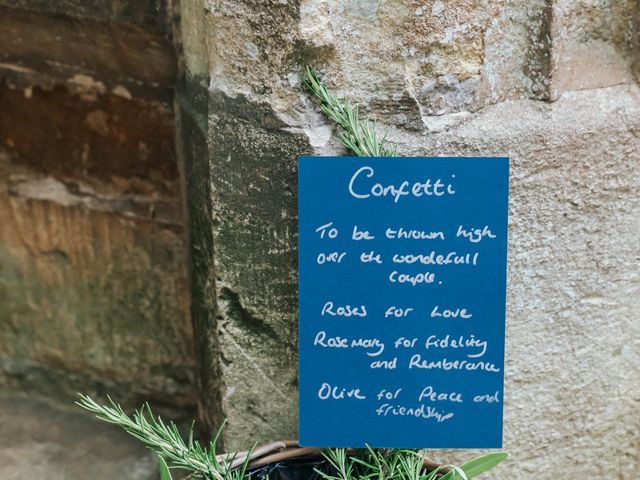 Confetti
To be thrown high
over the wonderfull
couple.
Roses for Love
Rosemary for fidelity
and Remberance
Olive for Peace and
friendship